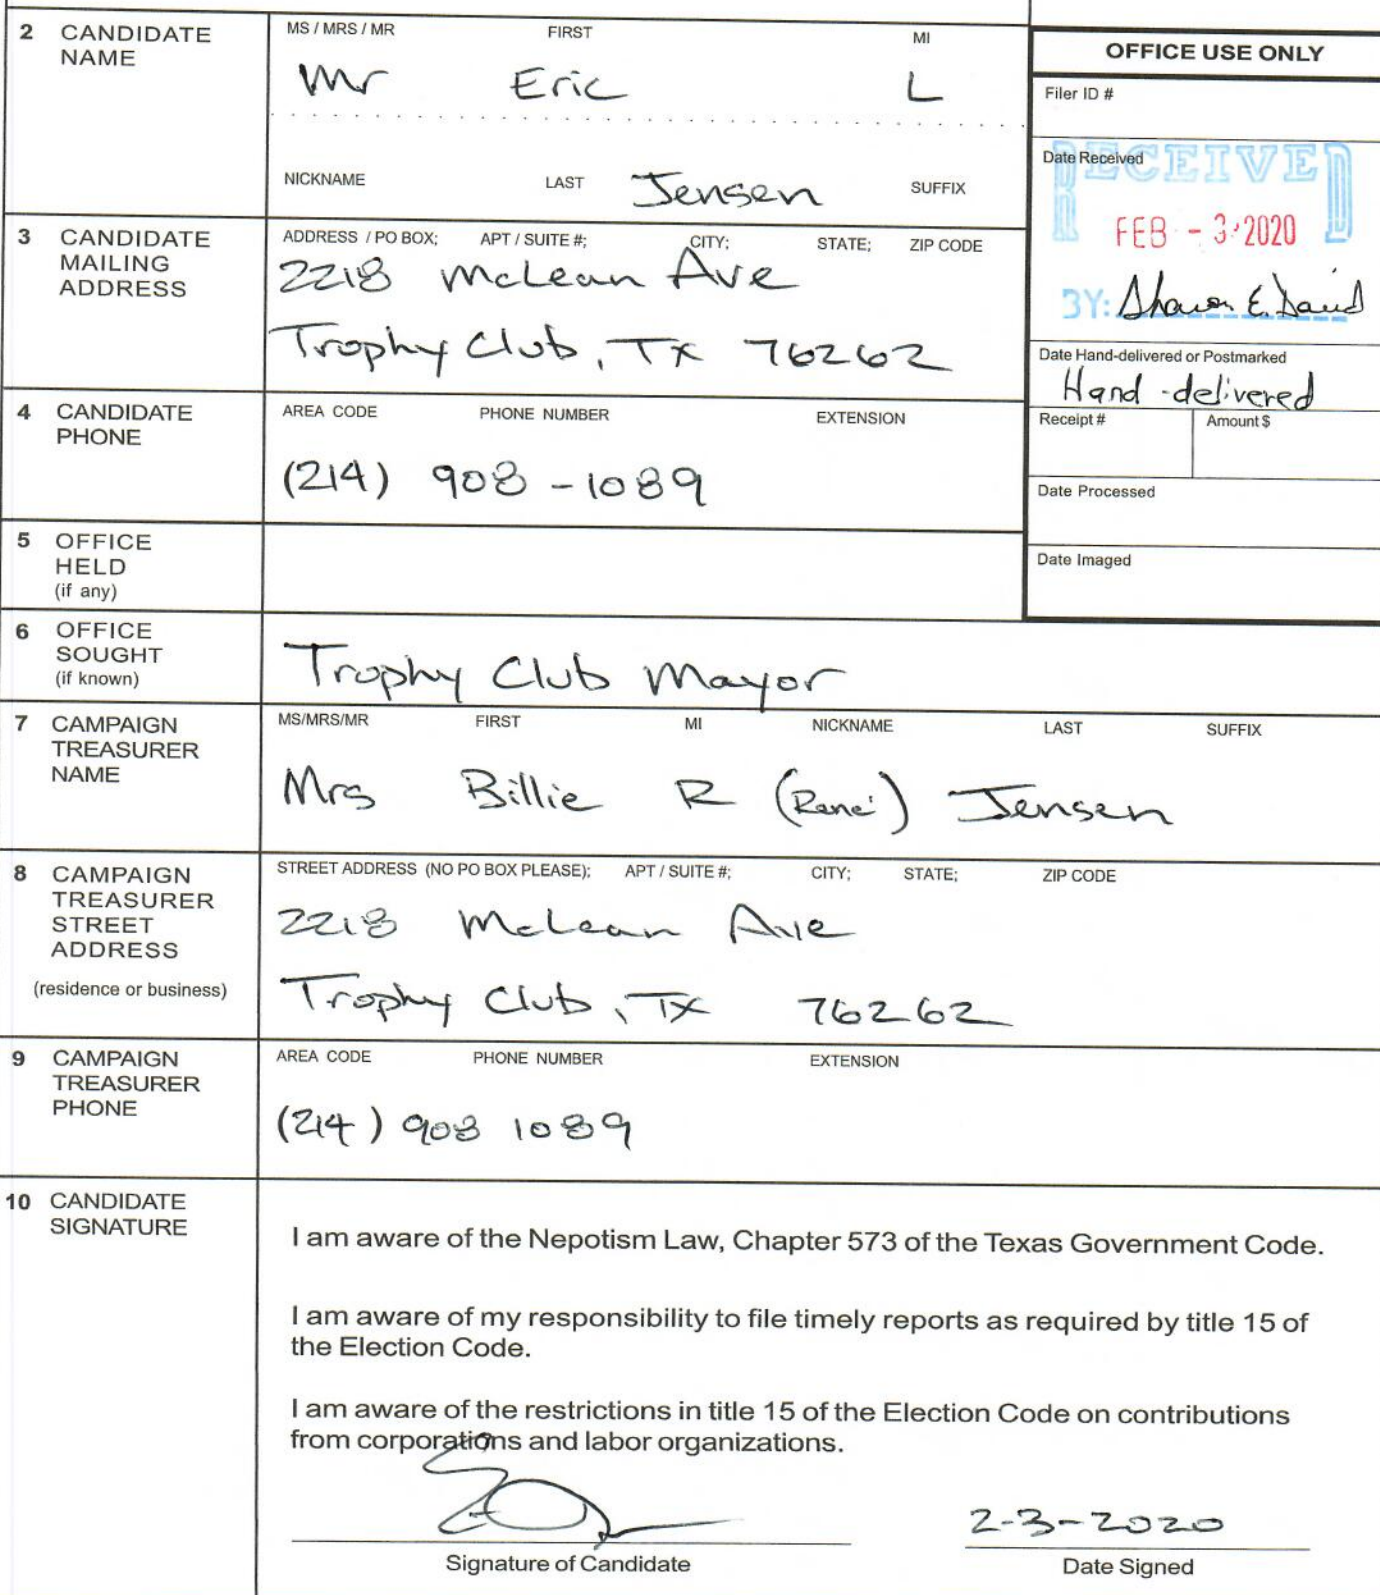 2 CANDIDATE NAME
MS / MRS / MR FIRST MI
Mr Eric L
NICKNAME LAST SUFFIX
Jensen
OFFICE USE ONLY
Filer ID #
Date Received
RECEIVED
FEB - 3 2020
BY: Sharon E. David
Date Hand-delivered or Postmarked
Hand-delivered
Receipt # Amount $
Date Processed
Date Imaged
3 CANDIDATE MAILING ADDRESS
ADDRESS / PO BOX; APT / SUITE #; CITY; STATE; ZIP CODE
2218 McLean Ave
Trophy Club, TX 76262
4 CANDIDATE PHONE
AREA CODE PHONE NUMBER EXTENSION
(214) 908-1089
5 OFFICE HELD (if any)
6 OFFICE SOUGHT (if known)
Trophy Club Mayor
7 CAMPAIGN TREASURER NAME
MS/MRS/MR FIRST MI NICKNAME LAST SUFFIX
Mrs Billie R (René) Jensen
8 CAMPAIGN TREASURER STREET ADDRESS
(residence or business)
STREET ADDRESS (NO PO BOX PLEASE); APT / SUITE #; CITY; STATE; ZIP CODE
2218 McLean Ave
Trophy Club, TX 76262
9 CAMPAIGN TREASURER PHONE
AREA CODE PHONE NUMBER EXTENSION
(214) 908 1089
10 CANDIDATE SIGNATURE
I am aware of the Nepotism Law, Chapter 573 of the Texas Government Code.
I am aware of my responsibility to file timely reports as required by title 15 of
the Election Code.
I am aware of the restrictions in title 15 of the Election Code on contributions
from corporations and labor organizations.
2-3-2020
Signature of Candidate Date Signed